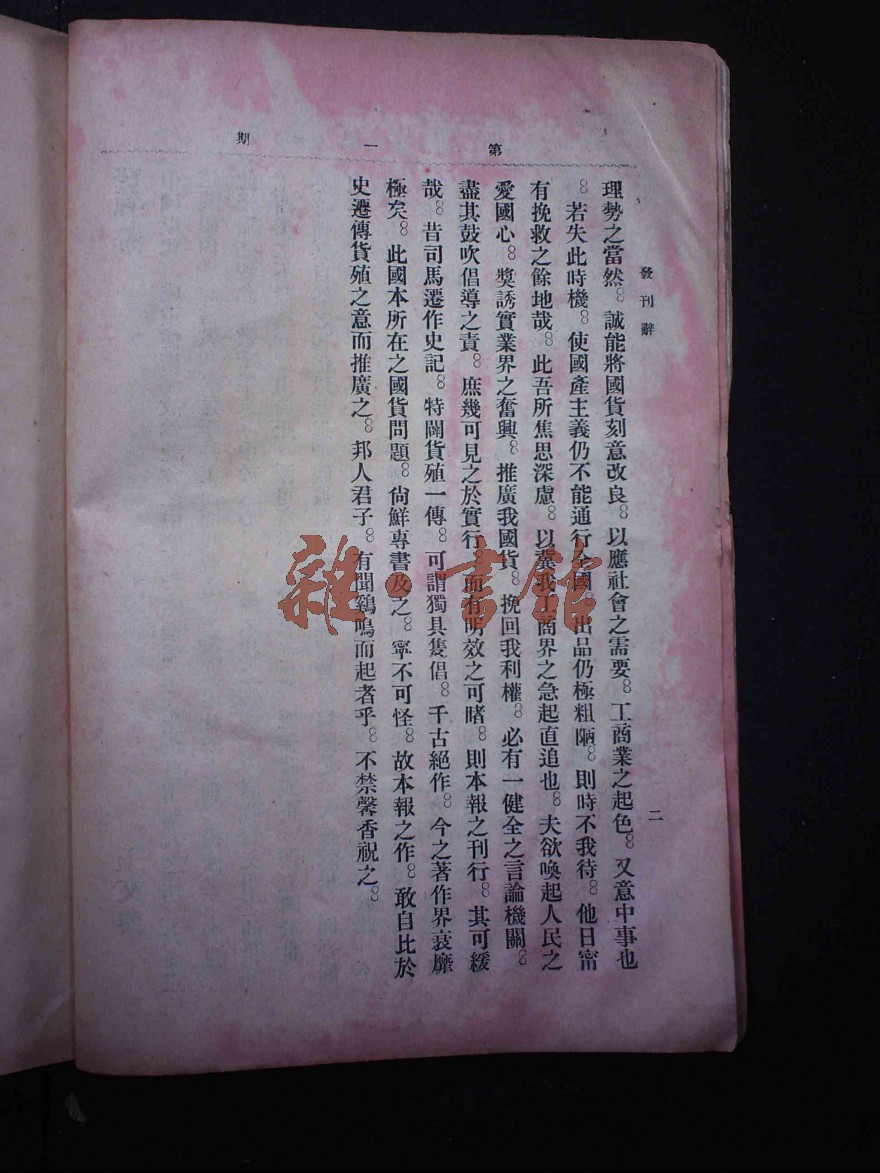 第一期
發刊辭
二
理勢之當然。誠能將國貨刻意改良。以應社會之需要。工商業之起色。又意中事也
。若失此時機。使國產主義仍不能通行全國。出品仍極粗陋。則時不我待。他日甯
有挽救之餘地哉。此吾所焦思深慮。以冀我工商界之急起直追也。夫欲喚起人民之
愛國心。獎誘實業界之奮興。推廣我國貨。挽回我利權。必有一健全之言論機關。
盡其鼓吹倡導之責。庶幾可見之於實行。而有明效之可睹。則本報之刊行。其可緩
哉。昔司馬遷作史記。特闢貨殖一傳。可謂獨具隻倡。千古絕作。今之著作界衰靡
極矣。此國本所在之國貨問題。尙鮮專書及之。寧不可怪。故本報之作。敢自比於
史遷傳貨殖之意而推廣之。邦人君子。有聞鷄鳴而起者乎。不禁馨香祝之。
雜·書館